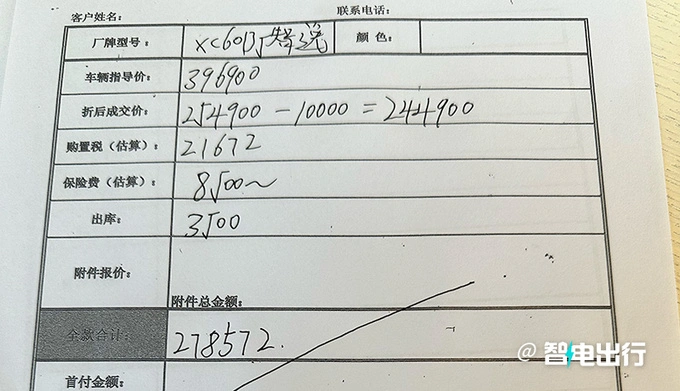 客户姓名: 联系电话:
厂牌型号: XC60 B5 智逸 颜色:
车辆指导价: 396900
折后成交价: 254900-10000=244900
购置税(估算): 21672
保险费(估算): 8500~
出库: 3500
附件报价:
附件总金额:
全款合计: 278572.
首付金额:
@智电出行